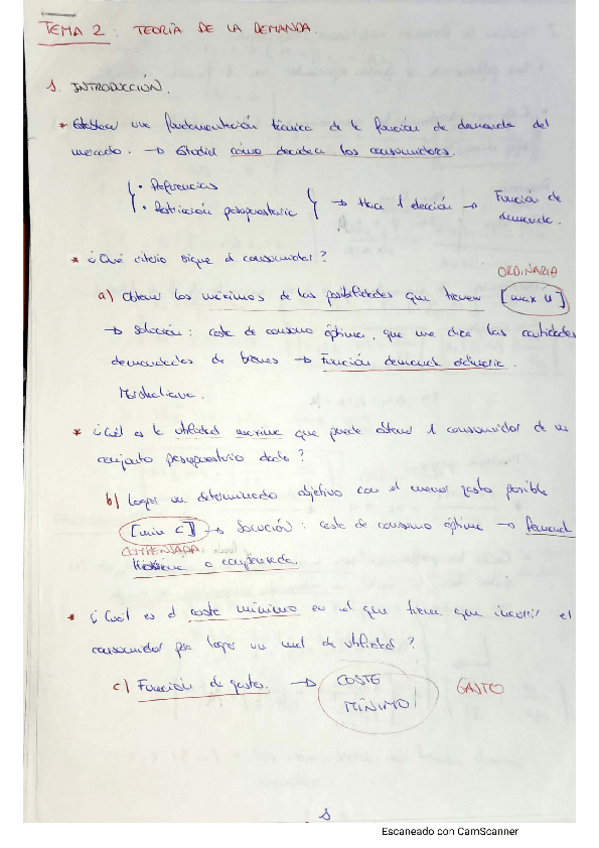 TEMA 2: TEORÍA DE LA DEMANDA.
1. INTRODUCCIÓN.
* una fundamentación de la función de demanda del
mercado. → Estudiar cómo deciden los consumidores.
· Preferencias
· Restricción presupuestaria → Hace 1 elección → Función de
demanda.
* ¿Qué criterio sigue el consumidor?
ORDINARIA
a) Obtener los máximos de las posibilidades que tienen [max U]
→ Solución: cesta de consumo óptima, que me dice las cantidades
demandadas de bienes → Función demanda ordinaria.
Marshaliana.
* ¿Cuál es la utilidad máxima que puede obtener 1 consumidor de un
conjunto presupuestario dado?
b) Lograr un determinado objetivo con el menor gasto posible
[min C] → Solución: cesta de consumo óptima → Demanda
COMPENSADA
Hicksiana o compensada.
* ¿Cuál es el coste mínimo en el que tiene que incurrir el
consumidor para lograr un nivel de utilidad?
c) Función de gasto. → COSTE GASTO
MÍNIMO
1
Escaneado con CamScanner